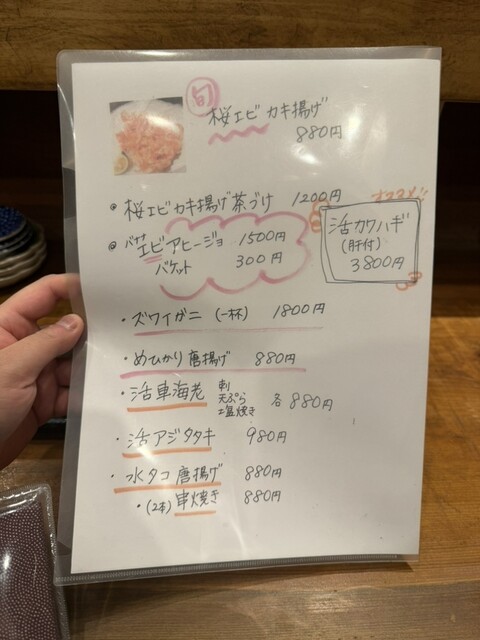 旬
桜エビ カキ揚げ
880円
桜エビカキ揚げ茶づけ 1200円
オススメ!!
活カワハギ
(肝付)
3800円
エビアヒージョ 1500円
バケット 300円
・ズワイガニ (一杯) 1800円
・めひかり唐揚げ 880円
・活車海老 刺 天ぷら 塩焼き 各880円
・活アジタタキ 980円
・水タコ唐揚げ 880円
・(2本)串焼き 880円